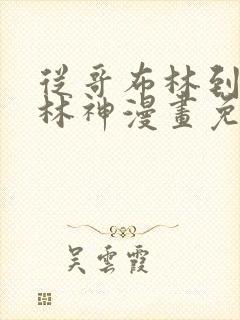 從哥布林到
林神漫畫免
吳雲霞